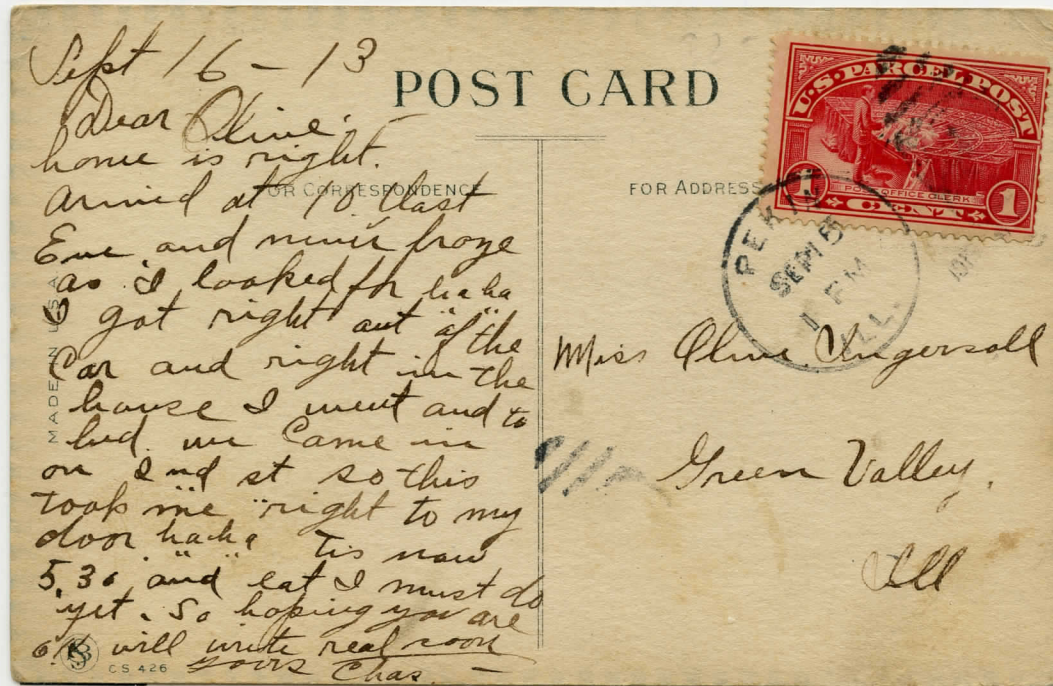 Sept 16 - 13
POST CARD
Dear Olive.
home is right.
FOR CORRESPONDENCE
arrived at 10 last
Eve and never froze
as I looked for ha ha
got right out of the
Car and right in the
house I went and to
bed. we Came in
on 2nd st so this
took me right to my
door ha ha Tis now
5,30 and eat I must do
yet. So hoping you are
O.K. will write real soon
yours Chas.
MADE IN U.S.A.
CS 426
FOR ADDRESS
U.S. PARCEL POST
POST OFFICE CLERK
1 CENT 1
PEKIN
SEP 15
PM
ILL.
Miss Olive Ingersoll
Green Valley,
Ill